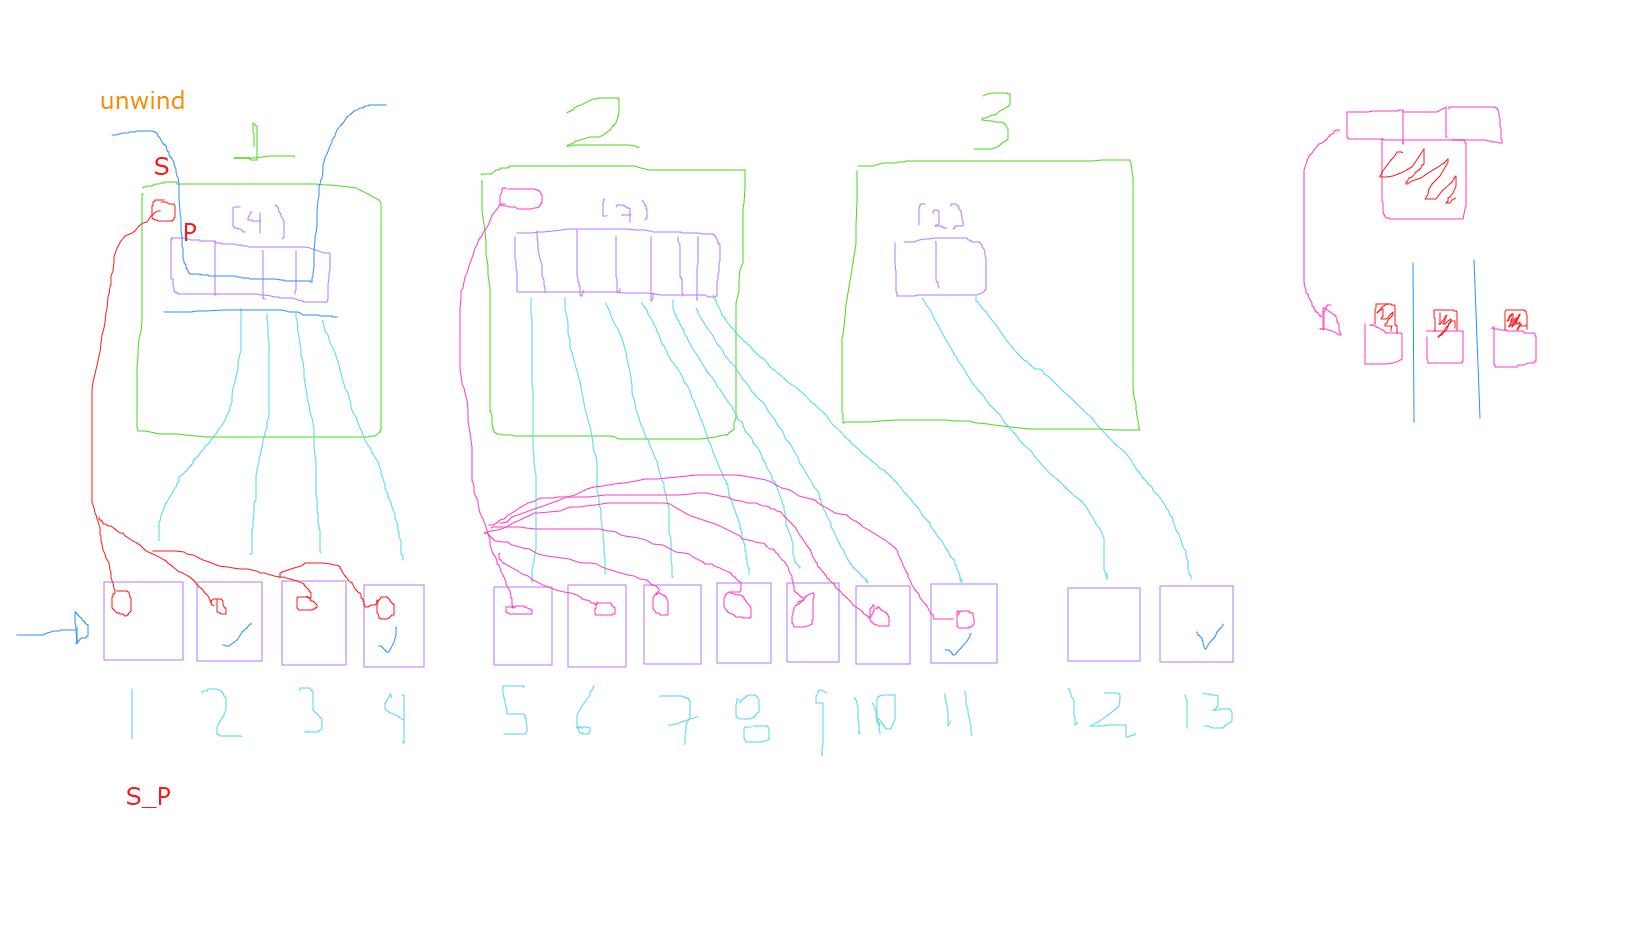 unwind
1 2 3
S
P
(4) (7) (2)
1 2 3 4 5 6 7 8 9 10 11 12 13
S_P